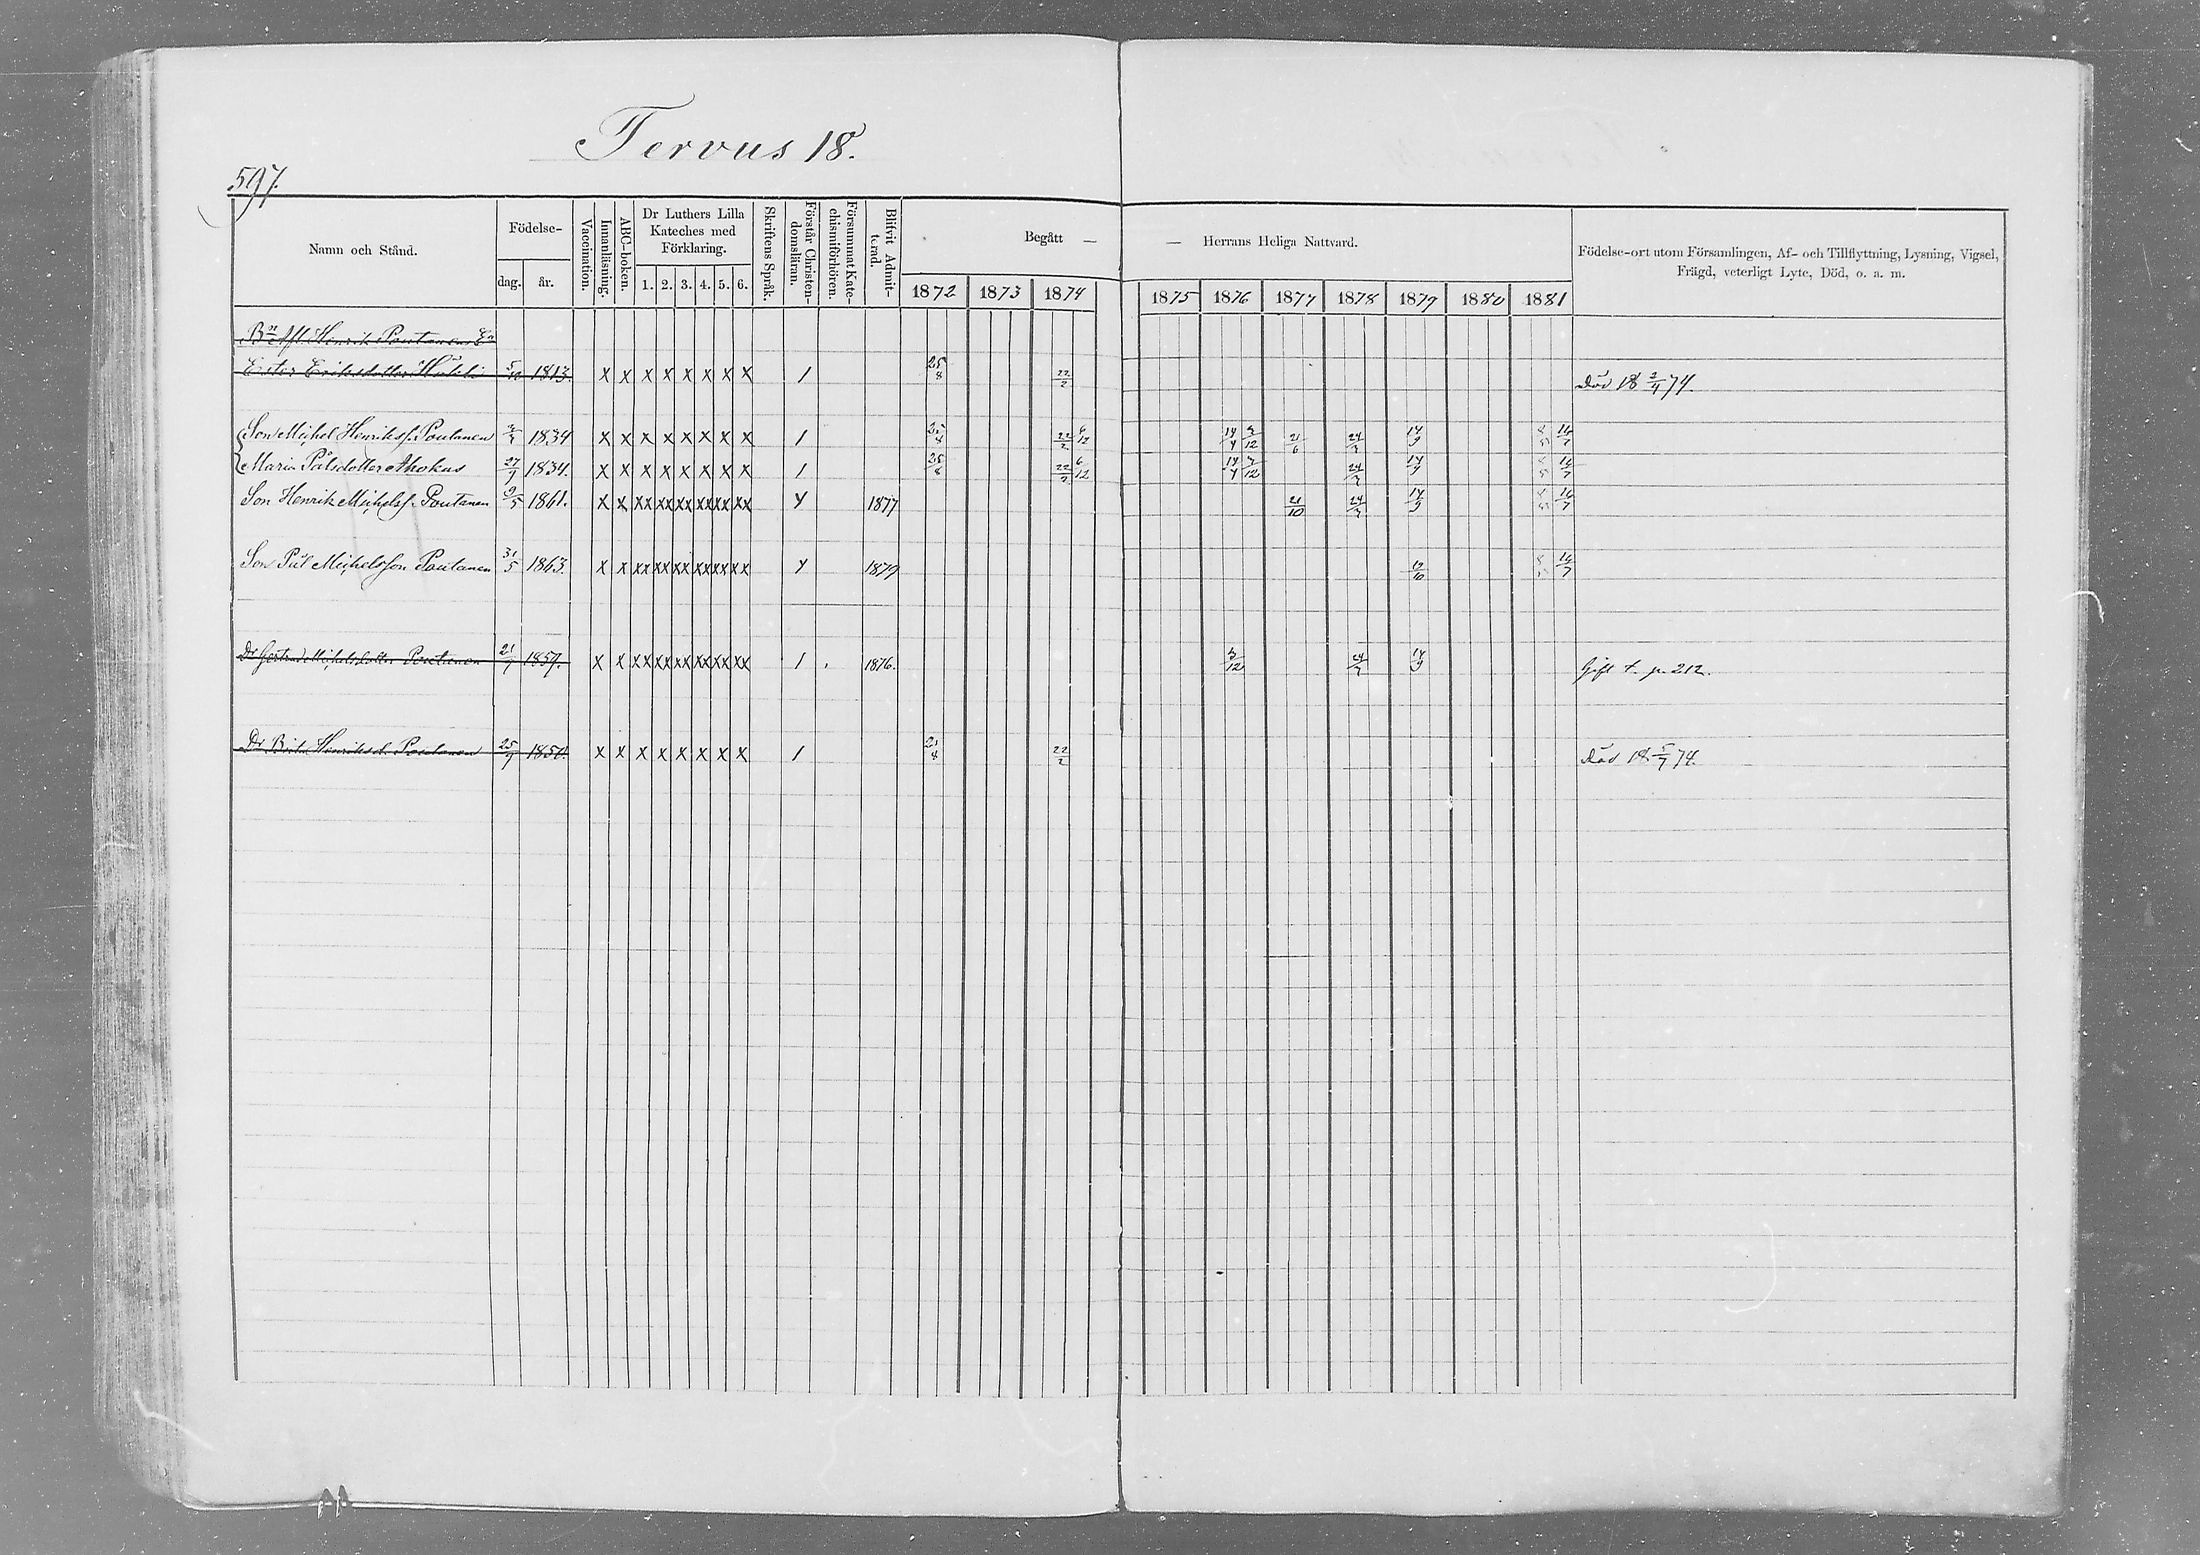 Tervus 18.
597.
Namn och Stånd.
Födelse-
dag. år.
Vaccination.
Innanläsning.
ABC-boken.
Dr Luthers Lilla
Kateches med
Förklaring.
1. 2. 3. 4. 5. 6.
Skriftens Språk.
Förstår Christen-
domsläran.
Försummat Kate-
chismiförhören.
Blifvit Admit-
terad.
Begått — — Herrans Heliga Nattvard.
1872 1873 1874 1875 1876 1877 1878 1879 1880 1881
Födelse-ort utom Församlingen, Af- och Tillflyttning, Lysning, Vigsel,
Frägd, veterligt Lyte, Död, o. a. m.
Afl Henrik Poutanens
Eriksdotter 5/10 1813. x x x x x x x x 1 25/8 22/2 Död 18 2/4 74.
Son Michel Henrikss. Poutanen 1834 x x x x x x x x 1 22/2 6/12 14/4 3/12 21/6 24/3 14/9 16/7
Maria Pålsdotter Ahokas 27/9 1834. x x x x x x x x 1 25/8 22/2 6/12 14/4 3/12 24/3 14/9 16/7
Son Henrik Michelss. Poutanen 9/5 1861. x x xx xx xx xx xx xx Y 1877 21/10 24/3 14/9 16/7
Son Pål Michelsson Poutanen 31/5 1863. x x xx xx xx xx xx xx Y 1879 16/7
Dr Michelsdotter Poutanen 21/9 1857. x x xx xx xx xx xx xx 1 1876. 3/12 24/3 14/9 Gift t. p. 212.
Dr Henriksd. Poutanen 25/9 x x x x x x x x 1 22/2 Död 18 5/7 74.